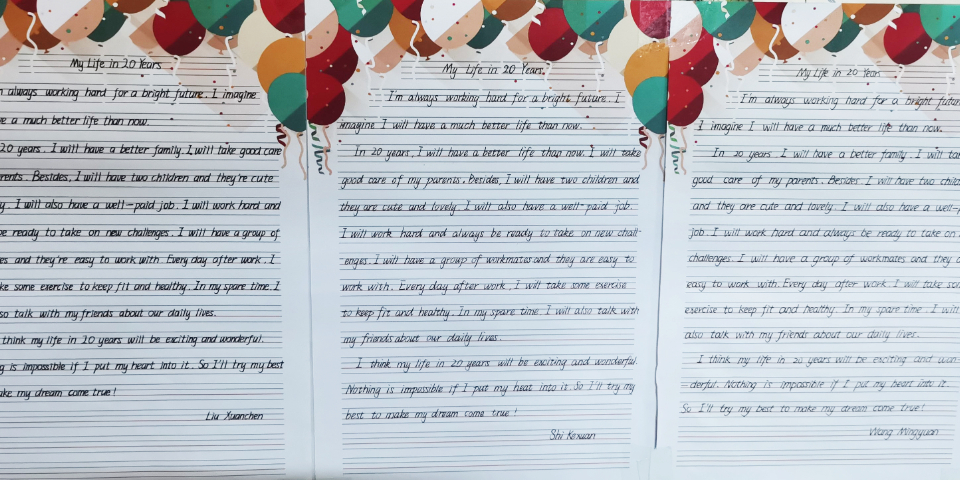 My Life in 20 Years
always working hard for a bright future. I imagine
a much better life than now.
20 years. I will have a better family. I will take good care
Besides, I will have two children and they're cute
I will also have a well-paid job. I will work hard and
be ready to take on new challenges. I will have a group of
and they're easy to work with. Every day after work. I
some exercise to keep fit and healthy. In my spare time. I
talk with my friends about our daily lives.
think my life in 20 years will be exciting and wonderful.
is impossible if I put my heart into it. So I'll try my best
my dream come true!
Liu Xuanchen
My Life in 20 Years
I'm always working hard for a bright future. I
imagine I will have a much better life than now.
In 20 years, I will have a better life than now. I will take
good care of my parents. Besides, I will have two children and
they are cute and lovely. I will also have a well-paid job.
I will work hard and always be ready to take on new chall-
enges. I will have a group of workmates and they are easy to
work with. Every day after work, I will take some exercise
to keep fit and healthy. In my spare time. I will also talk with
my friends about our daily lives.
I think my life in 20 years will be exciting and wonderful.
Nothing is impossible if I put my heat into it. So I'll try my
best to make my dream come true!
Shi Kexuan
My Life in 20 Years
I'm always working hard for a bright
I imagine I will have a much better life than now.
In 20 years. I will have a better family. I will
good care of my parents. Besides. I will have two
and they are cute and lovely. I will also have a
job. I will work hard and always be ready to take on
challenges. I will have a group of workmates and they
easy to work with. Every day after work. I will take
exercise to keep fit and healthy. In my spare time. I will
also talk with my friends about our daily lives.
I think my life in 20 years will be exciting and won-
derful. Nothing is impossible if I put my heart into it.
So I'll try my best to make my dream come true!
Wang Mingyuan